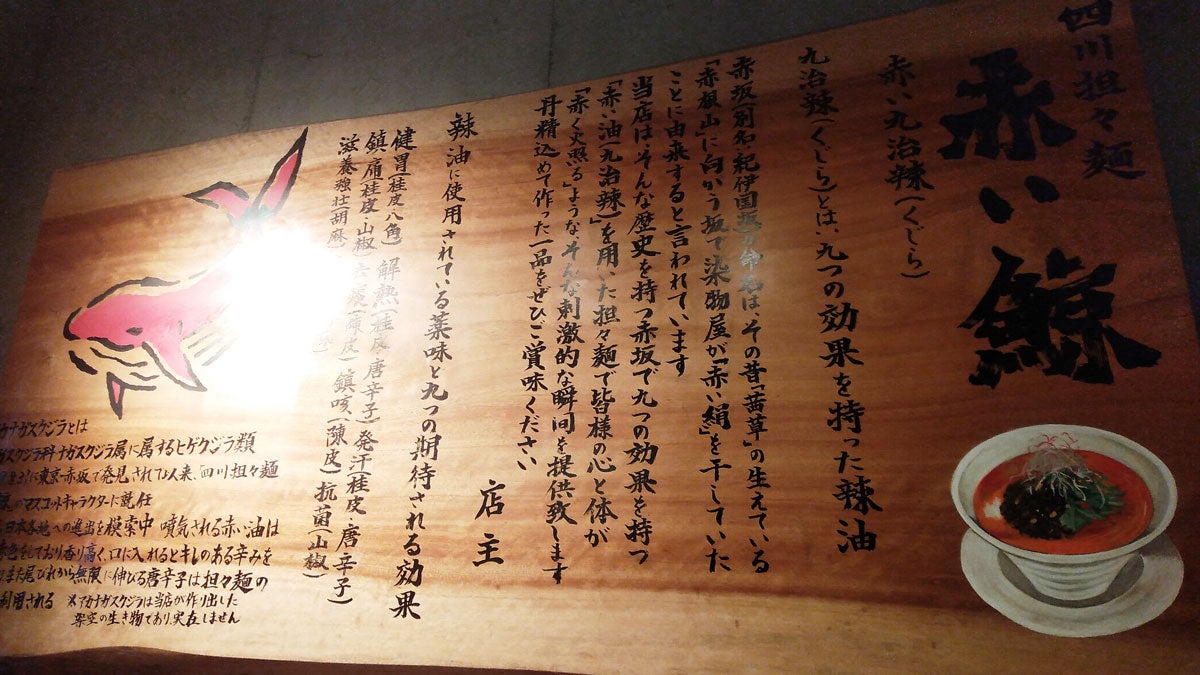 四川担々麺
赤い鯨
赤い九治辣(くじら)
九治辣(くじら)とは、九つの効果を持った辣油
赤坂(別名・紀伊国坂)の命名は、その昔「茜草」の生えている
「赤根山」に向かう坂で染物屋が「赤い絹」を干していた
ことに由来すると言われています
当店は、そんな歴史を持つ赤坂で九つの効果を持つ
「赤い油(九治辣)」を用いた担々麺で皆様の心と体が
「赤く火照る」ような、そんな刺激的な瞬間を提供致します
丹精込めて作った一品をぜひご賞味ください
店主
辣油に使用されている薬味と九つの期待される効果
健胃(桂皮八角) 解熱(桂皮 唐辛子) 発汗(桂皮・唐辛子)
鎮痛(桂皮・山椒) (陳皮) 鎮咳(陳皮) 抗菌(山椒)
滋養強壮(胡麻
カナガスクジラとは
ガスクジラ科ナガスクジラ属に属するヒゲクジラ類
に東京・赤坂で発見されて以来、四川担々麺
のマスコットキャラクターに就任
日本各地への進出を模索中 噴気される赤い油は
色をしており香り高く、口に入れるとキレのある辛みを
また尾びれから無限に伸びる唐辛子は担々麺の
利用される ※アカナガスクジラは当店が作り出した
架空の生き物であり、実在しません